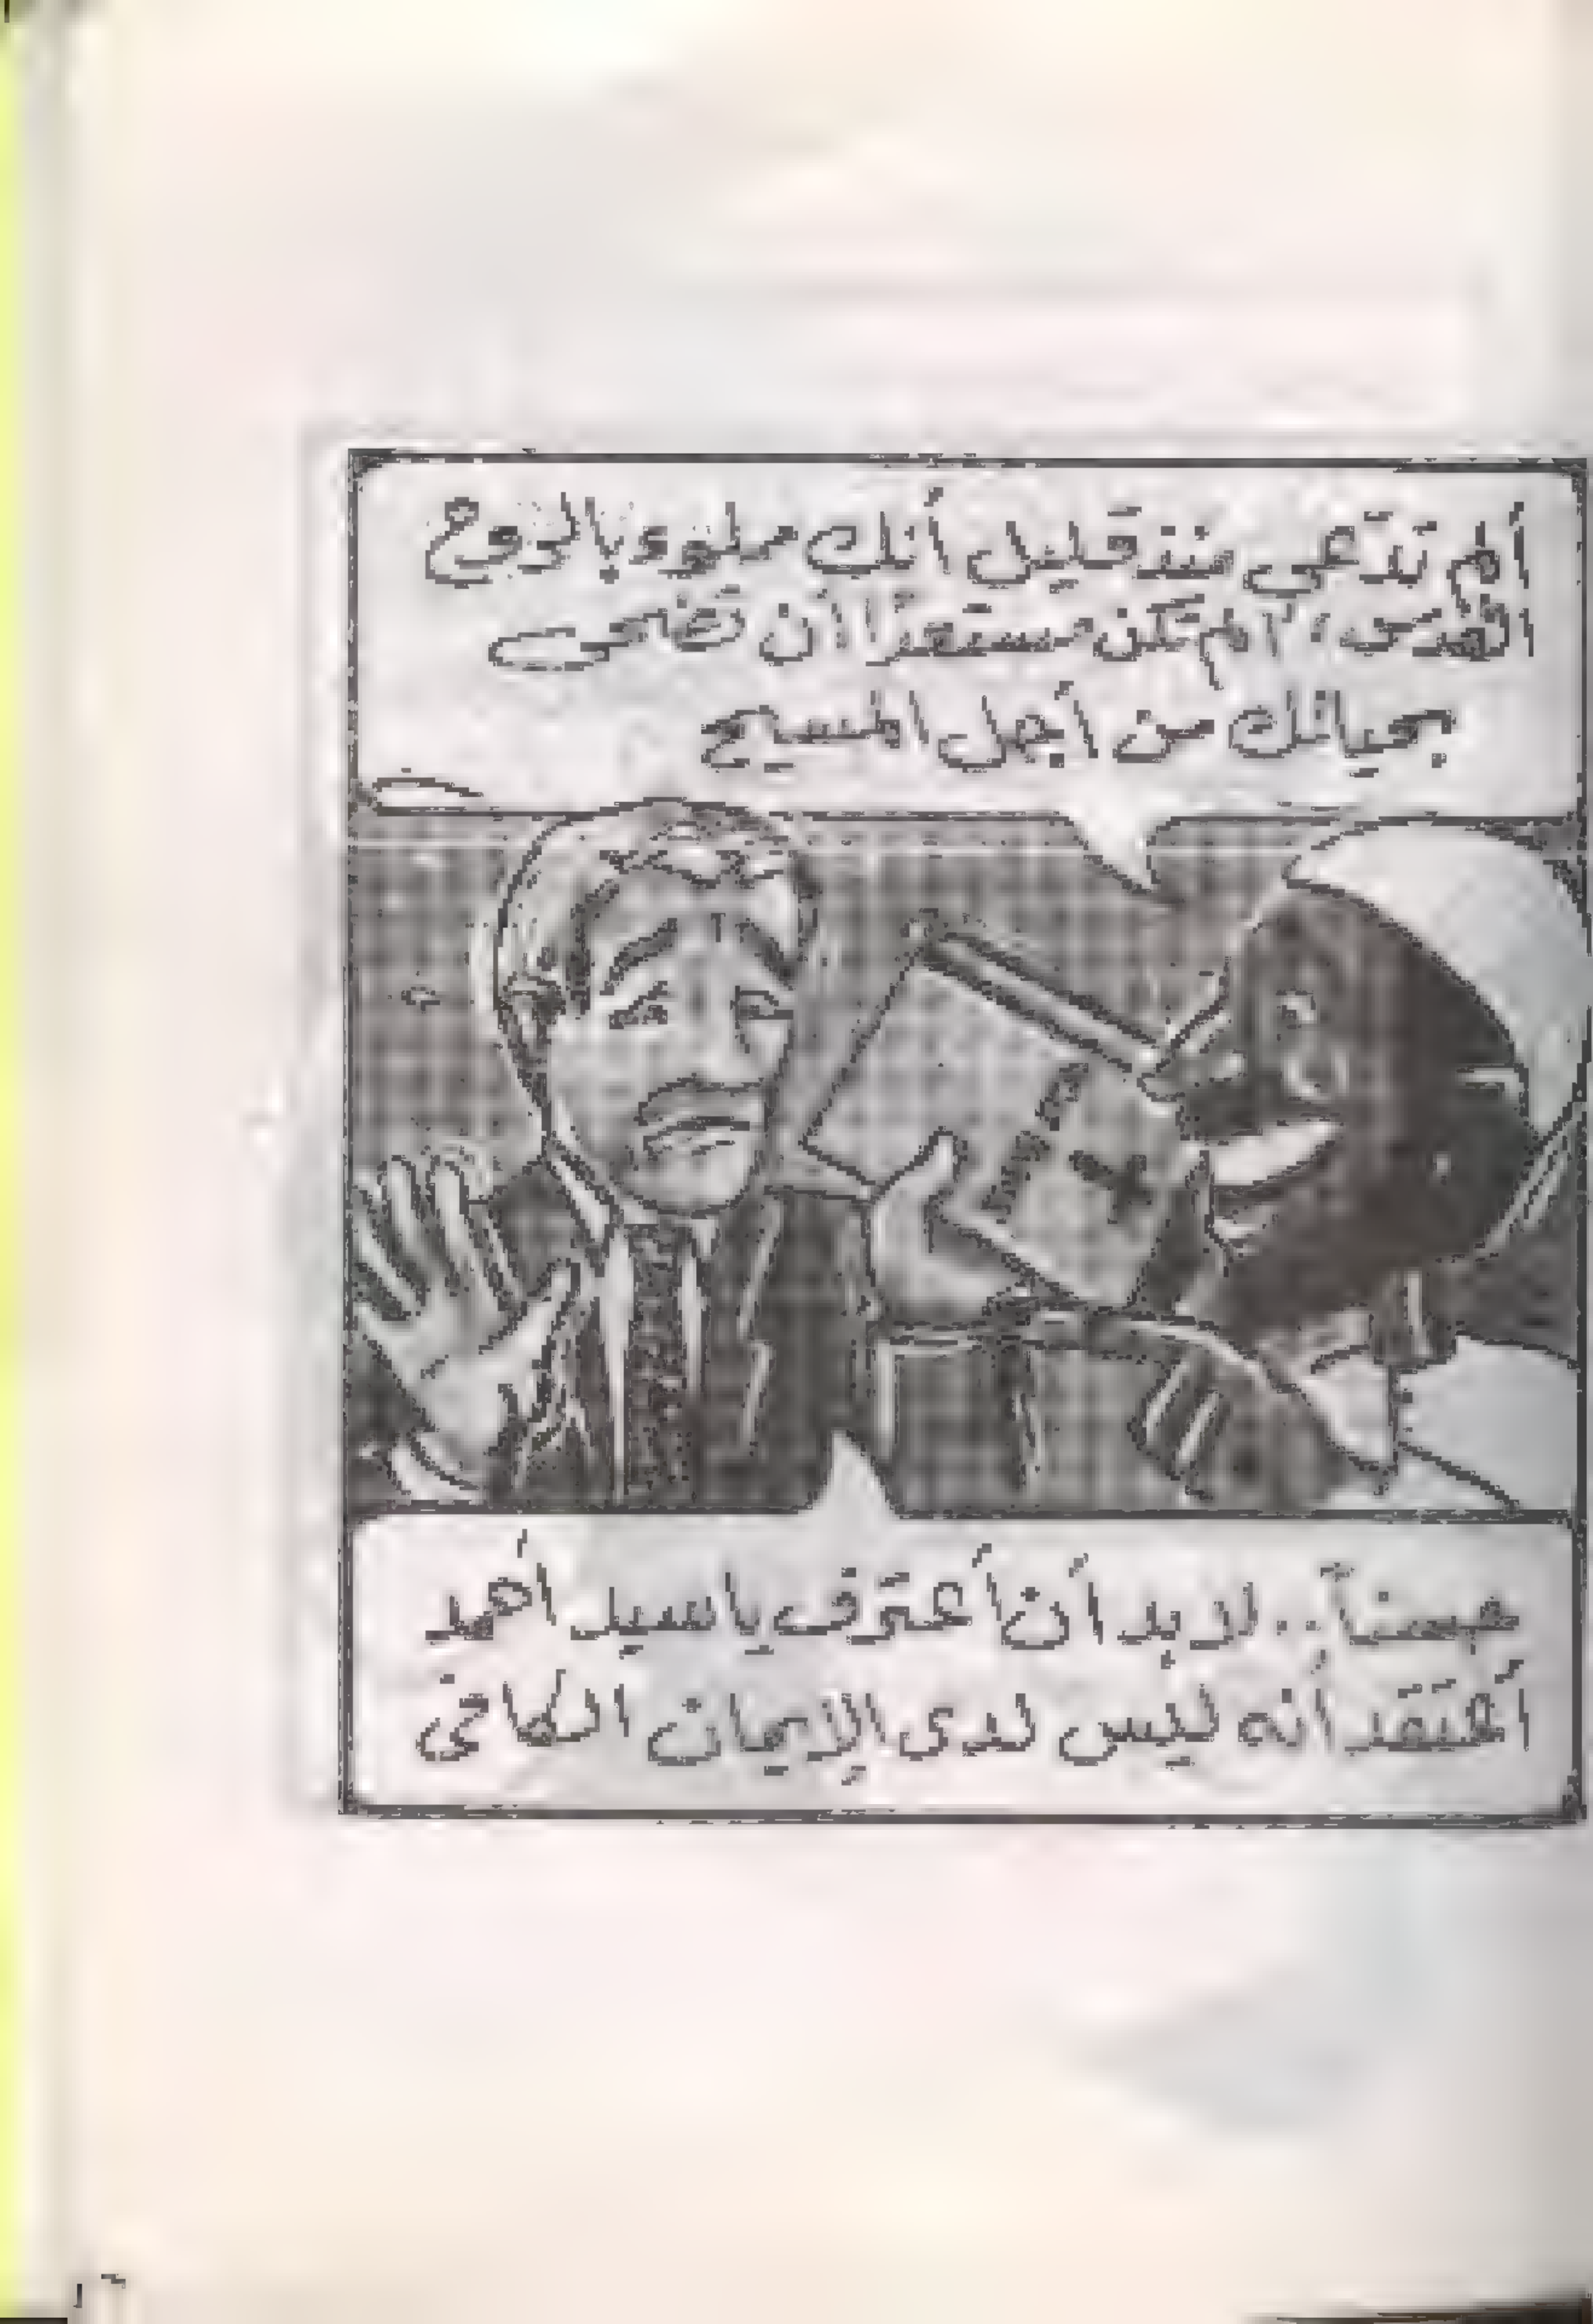 ألم تدّعى منذ قليل أنك مملوء بالروح
القدس، ألم تكن مستعدًا أن تضحى
بحياتك من أجل المسيح
حسناً.. لابد أن أعترف ياسيد أحمد
أعتقد أنه ليس لدى الإيمان الكافى